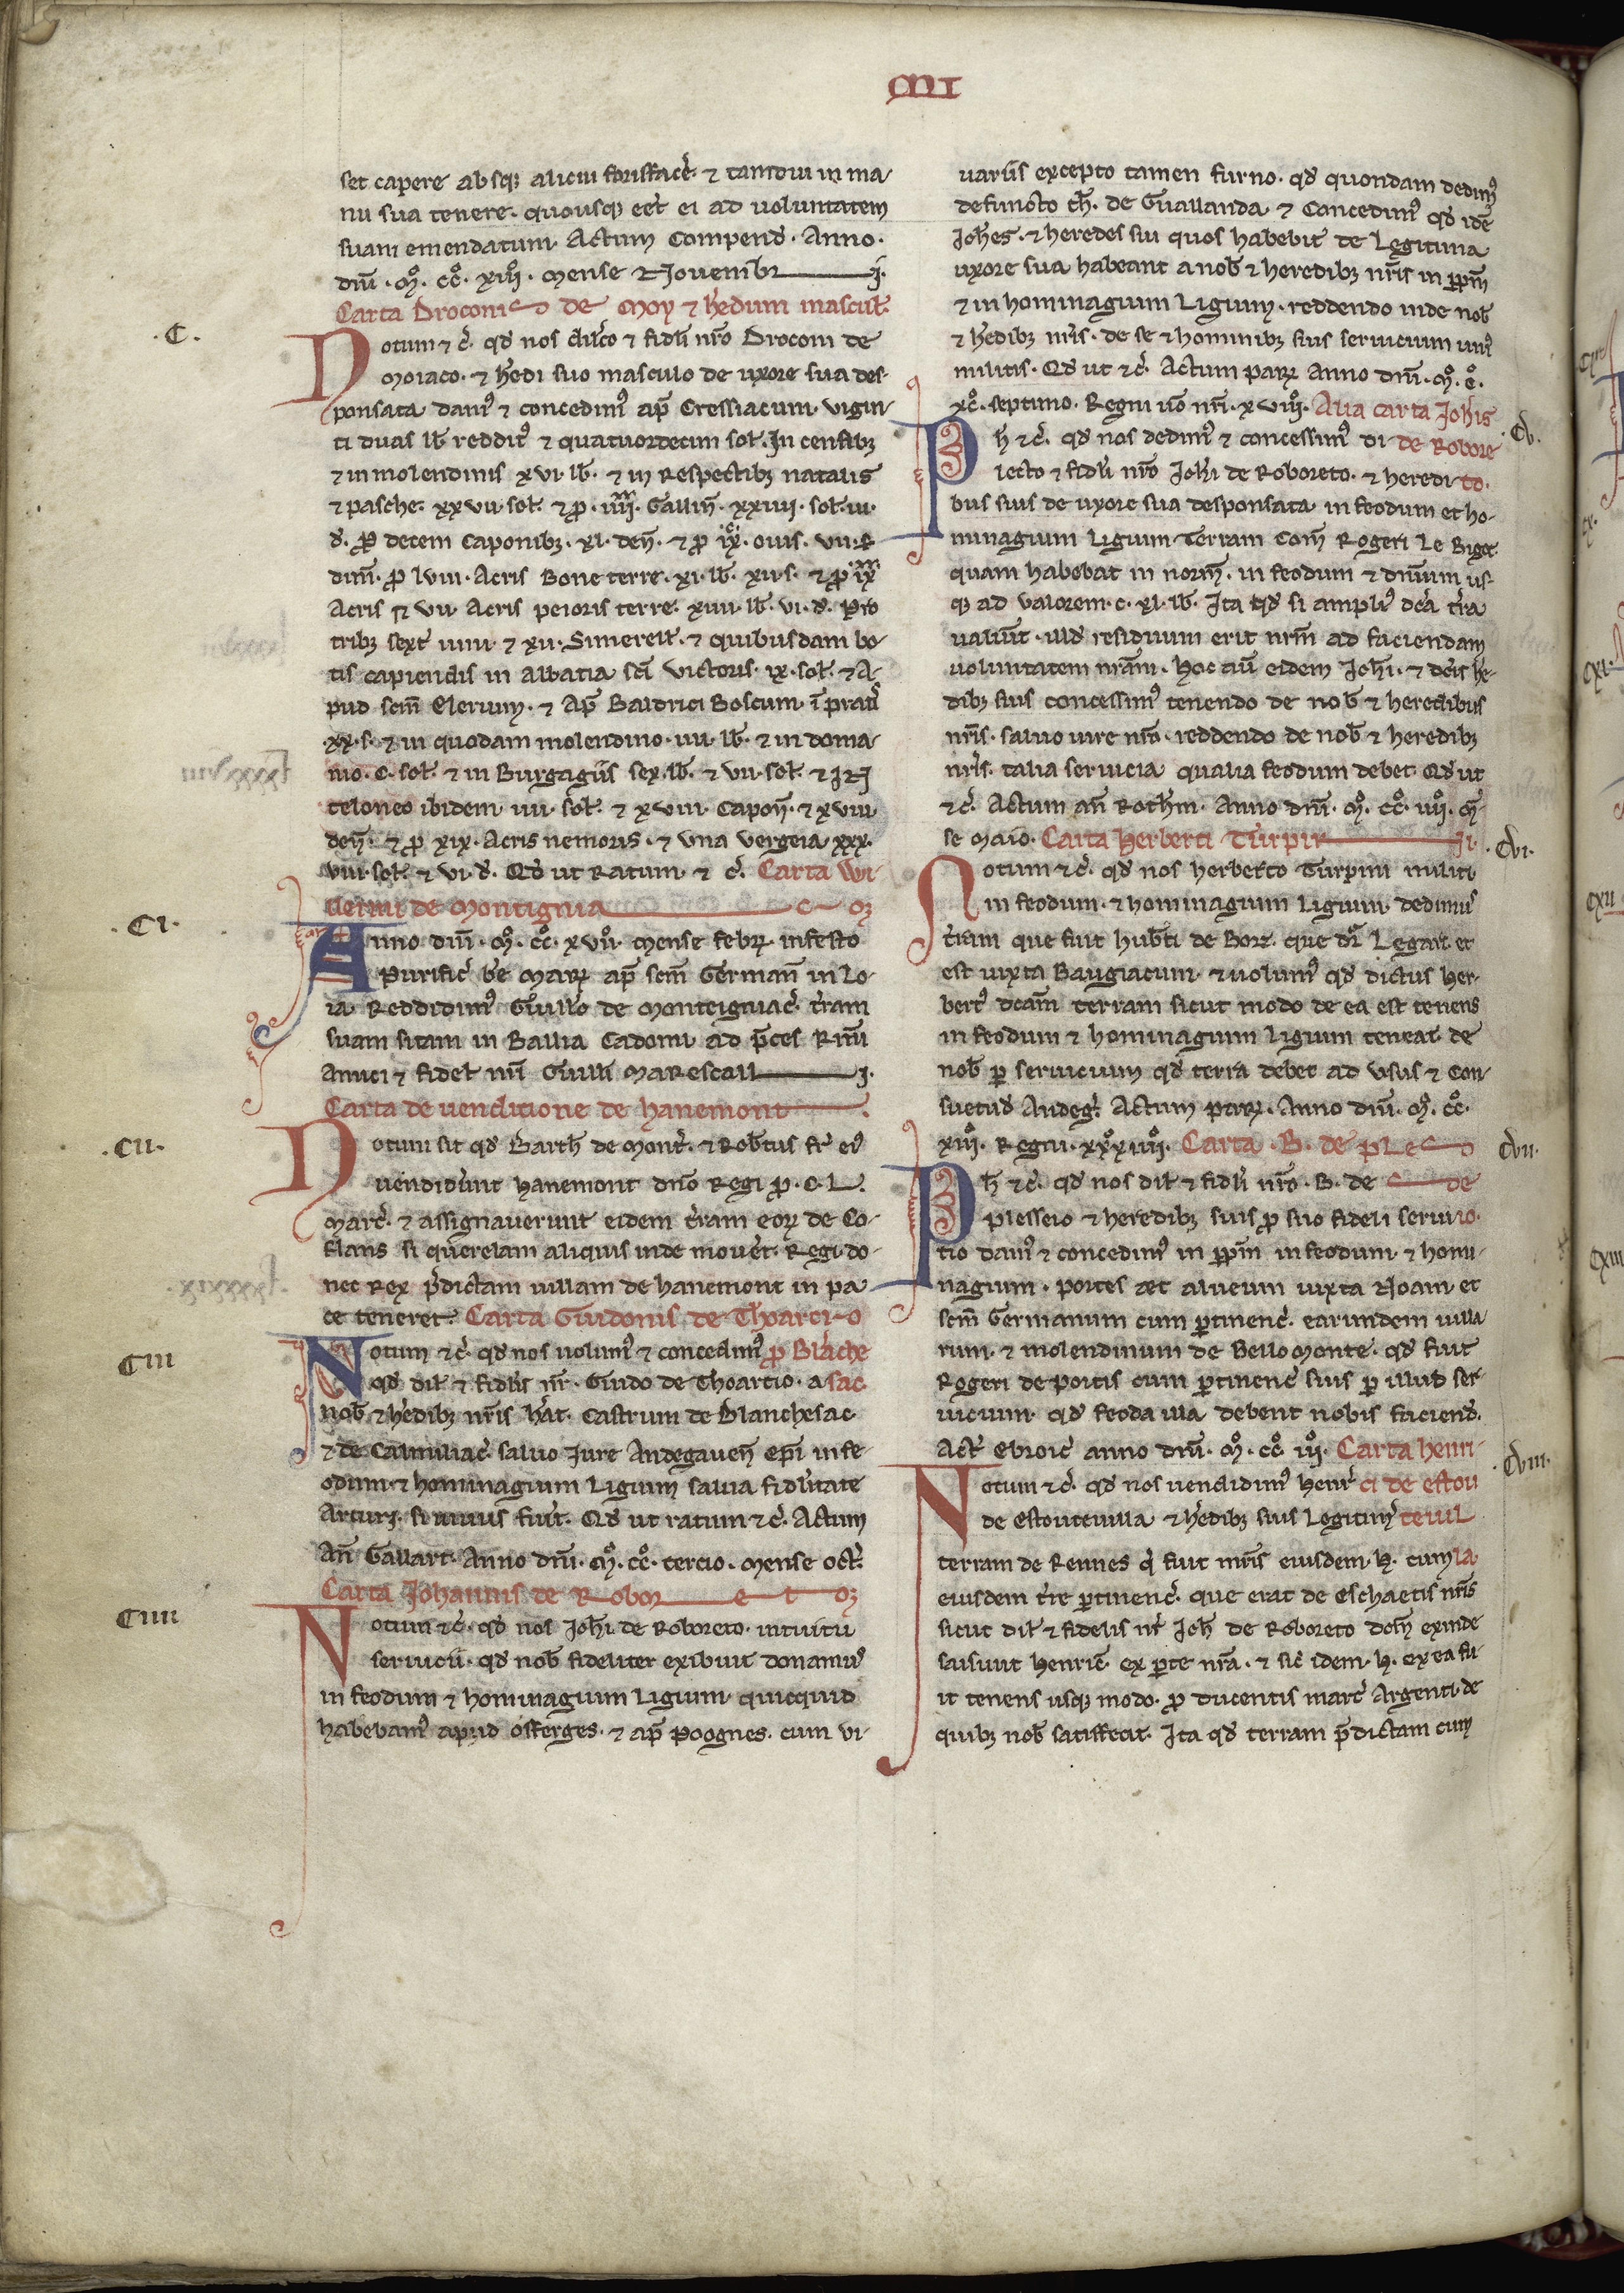 set capere absq; alicui͛ forisfac̄. ⁊ tamdiu in ma-
nu sua tenere. quousq; eēt ei ad uoluntatem
suam emendatum. Actum Compend̄. Anno.
dn̄i. M̊. cc̊. xiiii̊. mense Nouembr̄ .
Carta Droconis de Moy ⁊ hedum mascul̄.
.C.
Notum ⁊ c̄. qd̄ nos dil̄co ⁊ fidl̄i nr̄o Droconi de
Moiaco. ⁊ hedi suo masculo de uxore sua des-
ponsata dam᷒ ⁊ concedim᷒ ap̄ Cressiacum. vigin-
ti duas lb̄. reddit᷒ ⁊ quatuordecim sol̄. In censib;
⁊ in molendinis xvi. lb̄. ⁊ in Respectib; natalis
⁊ pasche. xxvii. sol̄. ⁊ ꝓ. Gallin̄. xxiiii. sol̄. iii.
d̄. ꝓ decem Caponib;. xi. den̄. ⁊ ꝓ ix. ouis. vii. ⁊
dim̄. ꝓ lviii. Acris Bone terre. xi. lb̄. xii. s̄. ⁊ ꝓ ix
Acris ⁊ vii. Acris peioris terre. xiiii. lb̄. vi. d̄. Pro
tribꝫ sext̄. uini. ⁊ xii. Simerell̄. ⁊ quibusdam bo-
tis capiendis in abbatia sc̄i victoris. ix. sol̄. ⁊ A-
pud scm̄ Elerium. ⁊ Ap̄ Baldrici Boscum. ī prat̄
xx. s̄. ⁊ in quodam molendino. iiii. lb̄. ⁊ in doma-
nio. c. sol̄. ⁊ in Burgagiis sex. lb̄. ⁊ vii. sol̄. ⁊ IN
teloneo ibidem. iiii. sol̄. ⁊ xviii. Capon̄. ⁊ xviii.
den̄. ⁊ ꝓ xix. Acris nemoris. ⁊ vna vergeia. xxx.
viii. sol̄. ⁊ vi. d̄. Qd̄ ut Ratum. ⁊ c̄. Carta Wi-
llermi de Montignia c
.CI.
Anno dn̄i. M̊. cc̊. xvii̊. mense febr̄. in festo
Purific̄ be Mar̄ ap̄ scm̄ German̄ in Lo-
ia. Reddidim᷒ Guill̄o de Monteigniac̄. tr̄am
suam sitam in Ballia Cadomi. ad p̄ces Rm̄i
Amici ⁊ fidel̄ nr̄i Guilli Marescall .
Carta de uenditione de hanemont .
.CII.
Notum sit qd̄ Barth̄. de Mont̄. ⁊ Rob̄tus fr̄ ei᷒
uendidert̄ hanemont dn̄o Regi ꝓ. C. L.
Marc̄. ⁊ assignauerunt eidem tr̄am eoꝝ de Co-
flans si querelam aliquis inde mouet̄. Regi. do-
nec Rex p̄dictam uillam de hanemont in pa
ce teneret. Carta Guidonis de Thoarci-o
CIII
Notum ⁊ c̄. qd̄ nos uolum᷒ ⁊ concedim᷒ ꝓ Blāche
qd̄ dil̄ ⁊ fidl̄is nr̄. Guido de Thoartio. a sac.
nob̄ ⁊ hedib; nr̄is hāt. Castrum de Blanchesac
⁊ de Calmiliac̄. saluo Iure Andegauen̄ ep̄i in fe-
odum. ⁊ hominagium Ligium salua fidl̄itate
Arturi. si uiuus fuit̄. Qd̄ ut ratum ⁊ c̄. Actum
An̄ Gallart. Anno dn̄i. M̊. cc̊. tercio. mense oct̄.
Carta Johannis de Robor e t
CIIII
Notum ⁊ c̄. qd̄ nos Joh̄i de Roboreto. intuitu
seruicii. qd̄ nob̄ fideliter exibuit donamu᷒
in feodum ⁊ hominagium Ligium. quicquid
habebam᷒ apud Osferges. ⁊ ap̄ Poognes. cum vi-
CIIII
uariis excepto tamen furno. qd̄ quondam dedim᷒
defuncto th̄. de Guallanda. ⁊ Concedim᷒ qd̄ idē
Joh̄es. ⁊ heredes sui quos habebit de Legitima
uxore sua habeant a nob̄ ⁊ heredib; nr̄is in ꝑpm̄
⁊ in hominagium Ligium. reddendo inde nob̄
⁊ hedib; nr̄is. de se ⁊ hominib; suis seruicium uni᷒
militis. Qd̄ ut ⁊ c̄. Actum par̄ Anno dn̄i. M̊. c̊.
xc̊. septimo. Regni u̅o nr̄i. xviii̊. Alia carta Joh̄is
CV.
Ph ⁊ c̄. qd̄ nos dedim᷒ ⁊ concessim᷒ di de Robore
lecto ⁊ fidl̄i nr̄o Joh̄i de Roboreto. ⁊ heredi to.
bus suis de uxore sua desponsata. in feodum et ho-
minagium Ligium. Terram Com̄ Rogeri Le Bigot
quam habebat in norm̄. in feodum ⁊ dn̄ium us-
q; ad valorem. c. xl. lb̄. Ita qd̄ si ampli᷒ dc̄a tr̄a
ualiut̄. illd̄ residuum erit nrm̄ ad faciendam
uoluntatem nr̄am. Hoc au̅ eidem Joh̄i. ⁊ dc̄is he-
dib; suis concessim᷒ tenendo de nob̄ ⁊ heredibus
nr̄is. saluo iure nr̄o. reddendo de nob̄ ⁊ heredib;
nr̄is. talia seruicia qualia feodum debet. Qd̄ ut
⁊ c̄. Actum an̄ Roth̄m. Anno dn̄i. M̊. cc̊. iiii̊. m̄-
se Maio. Carta Herberti Turpin .
CVI.
Notum ⁊ c̄. qd̄ nos herberto Turpini militi
in feodum. ⁊ hominagium Ligium. dedimu᷒
tr̄am que fuit hub̄ti de Borz. que dr̄ Legart. et
est iuxta Baugiacum. ⁊ uolum᷒ qd̄ dictus her-
bert᷒ dc̄am terram sicut modo de ea est tenens
in feodum ⁊ hominagium Ligium teneat. de
nob̄ ꝑ seruicium qd̄ terra debet ad usus ⁊ Con-
suetud̄ Andeg̅. Actum par̄. Anno dn̄i. M̊. cc̊.
xiii̊. Regni. xxxiiii̊. Carta. B. de ple
CVII.
Ph ⁊ c̄. qd̄ nos dil̄ ⁊ fidl̄i nr̄o. B. de de
Plesseio ⁊ heredib; suis ꝓ suo fideli serui io.
tio dam᷒ ⁊ concedim᷒ in ꝑpm̄ in feodum. ⁊ homi-
nagium. portes aet alueum iuxta Noam. et
scm̄ Germanum cum ꝑtinenc̄. earumdem uilla
rum. ⁊ molendinum de Bello Monte. qd̄ fuit
Rogeri de Portis cum ꝑtinenc̄ suis ꝑ illud ser-
uicium. qd̄ feoda illa debent nobis faciend̄.
Act̄ Ebroic̄ anno dn̄i. M̊. cc̊. iii̊. Carta henri-
CVIII.
Notum ⁊ c̄. qd̄ nos uendidim᷒ henr̄ ci de estou
de Estouteuilla ⁊ hedib; suis Legitim᷒ teuil
terram de Rennes q̄ fuit mr̄is eiusdem. h. cum la.
eiusdem tr̄e ꝑtinenc̄. que erat de Eschaetis nr̄is
sicut dil̄ ⁊ fidelis nr̄ Joh̄ de Roboreto dom̄ exinde
saisiuit Henric̄. ex ꝑte nr̄a. ⁊ sic̄ idem. h. ex ea fu-
it tenens usq; modo. ꝓ ducentis marc̄ Argenti. de
quib; nob̄ satisfecit. Ita qd̄ terram p̄dictam cum